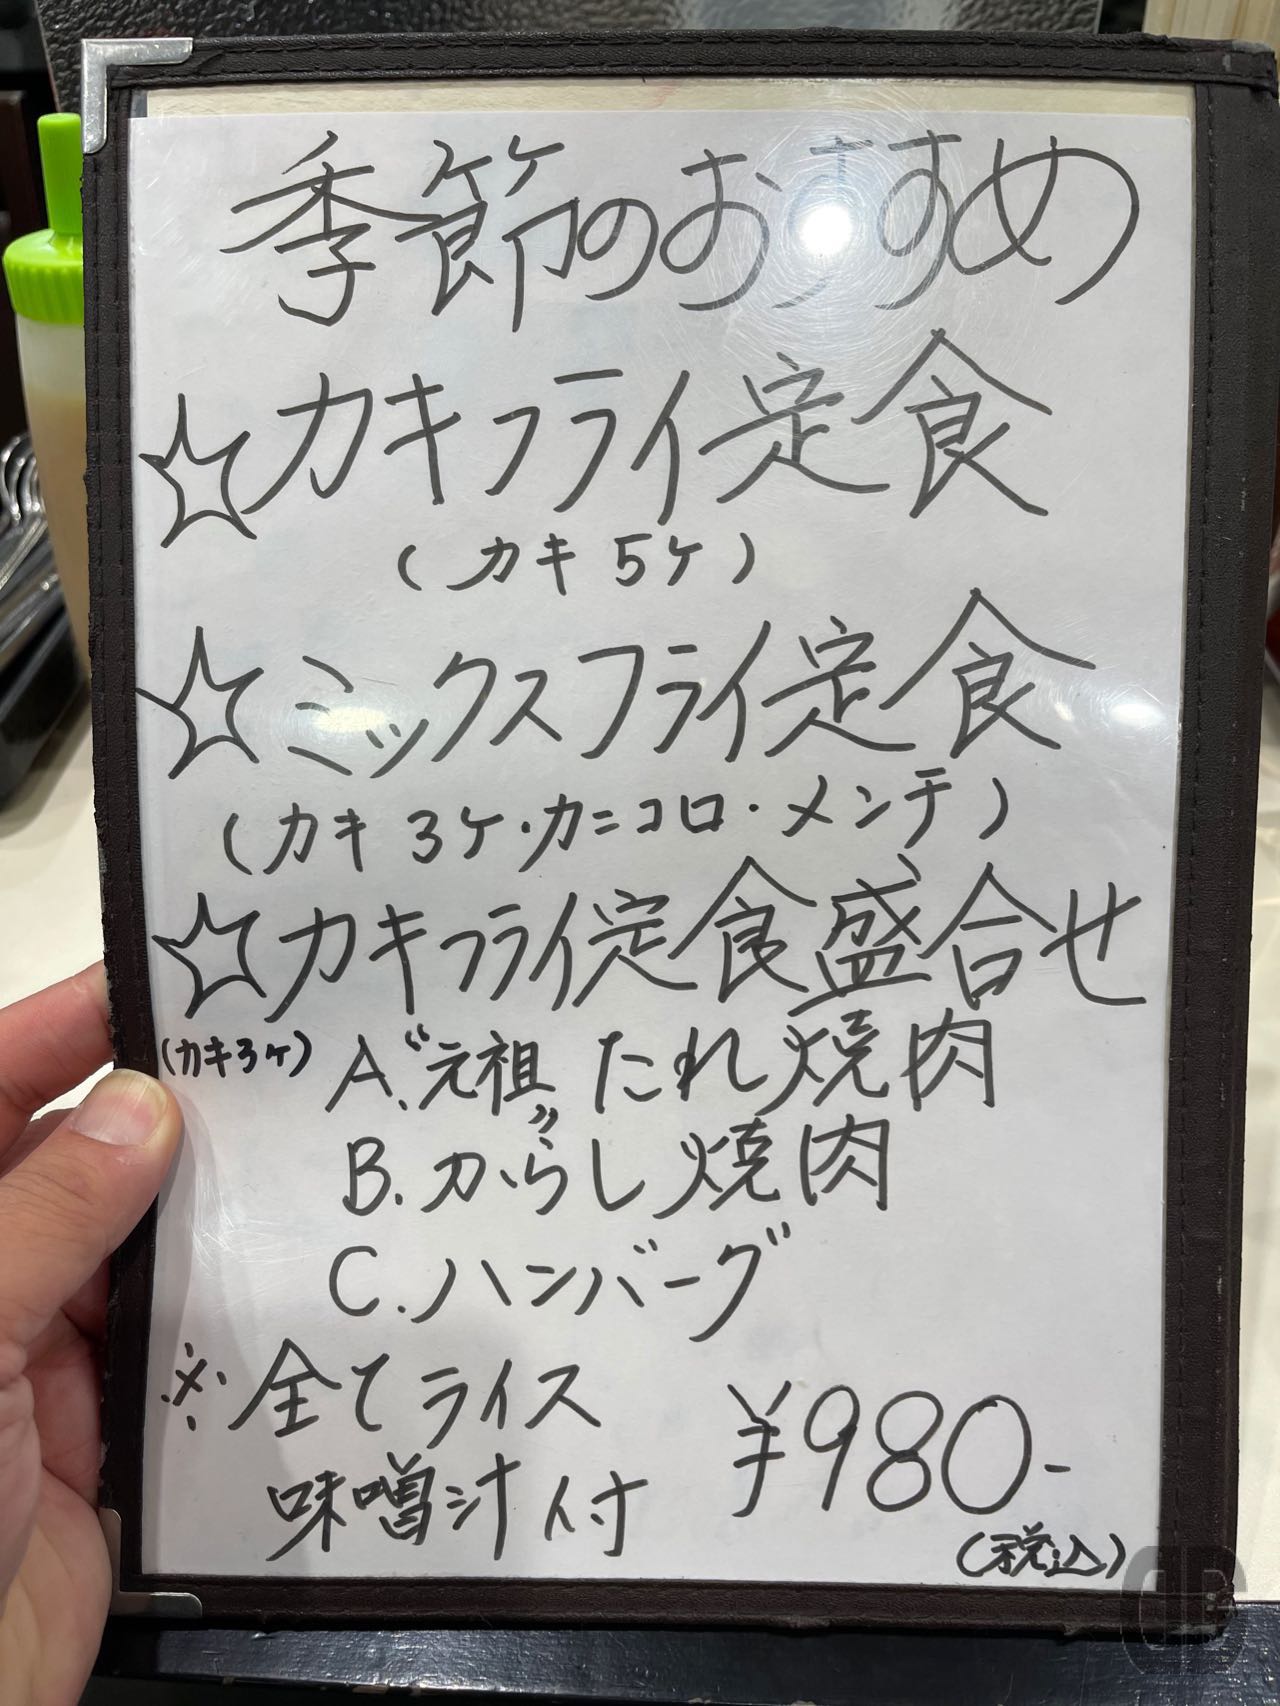 季節のおすすめ
☆カキフライ定食
(カキ5ケ)
☆ミックスフライ定食
(カキ3ケ・カニコロ・メンチ)
☆カキフライ定食盛合せ
(カキ3ケ) A.“元祖”たれ焼肉
B.からし焼肉
C.ハンバーグ
※全てライス
味噌汁付 ¥980-
(税込)